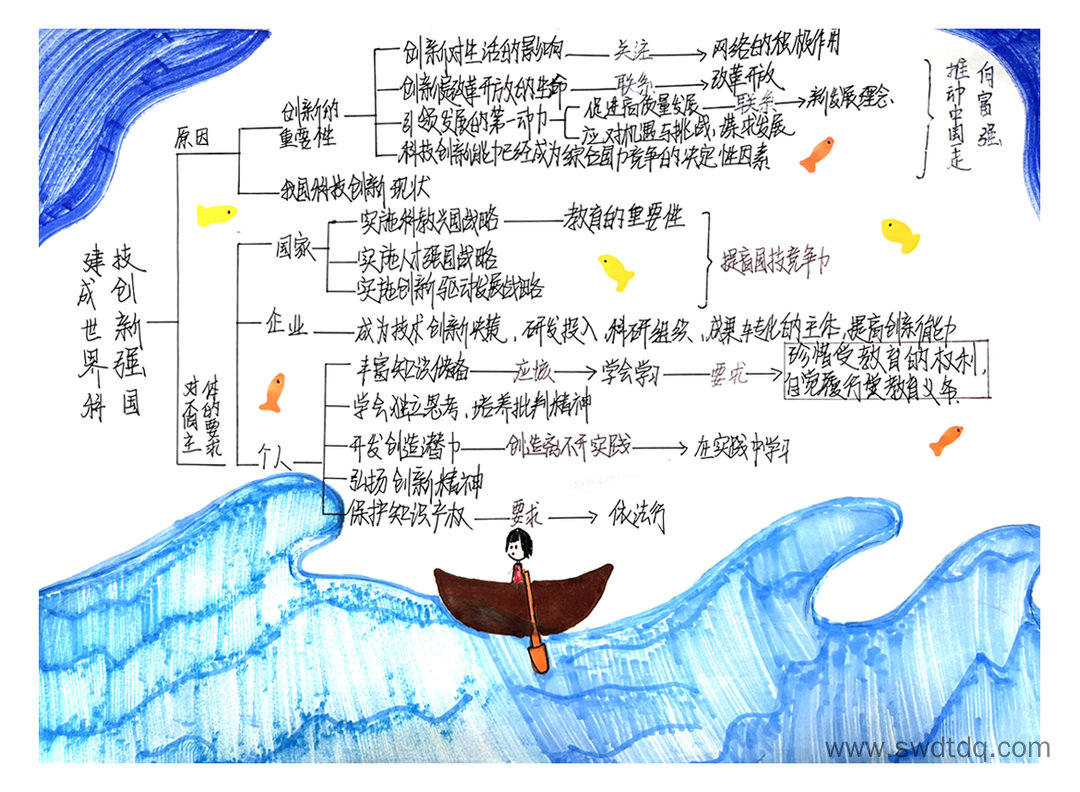 创新对生活的影响 关注 网络的积极作用
创新是改革开放的生命 联系 改革开放
引领发展的第一动力
促进高质量发展 联系 新发展理念
应对机遇与挑战,谋求发展
科技创新能力已经成为综合国力竞争的决定性因素
创新的
重要性
原因
我国科技创新现状
推动中国走
向富强
国家
实施科教兴国战略 教育的重要性
实施人才强国战略
实施创新驱动发展战略
提高国技竞争力
建成世界科
技创新强国
企业
成为技术创新决策、研发投入、科研组织、成果转化的主体,提高创新能力
对不同主
体的要求
个人
丰富知识储备 应该 学会学习 要求
珍惜受教育的权利,
自觉履行受教育义务.
学会独立思考、培养批判精神
开发创造潜力 创造离不开实践 在实践中学习
弘扬创新精神
保护知识产权 要求 依法行
www.swdtdq.com